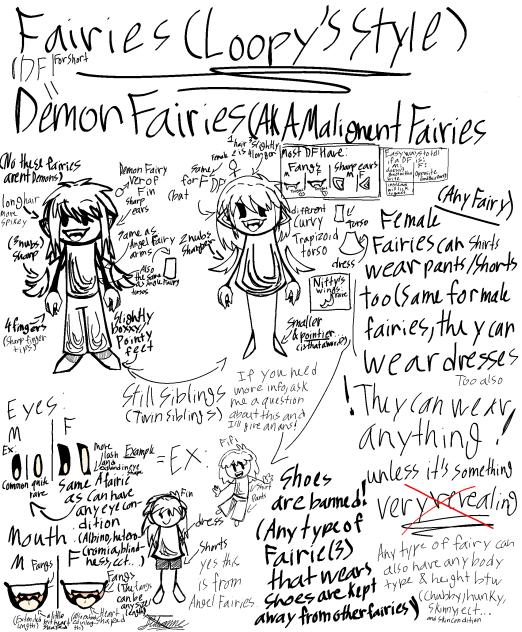 Fairies (Loopy's Style)
(DF) For short
Demon Fairies (AKA Malignent Fairies
(No these fairies
arent Demons)
long hair
more
spikey
(3 nubs)
sharp
4 fingers
(Sharp finger
tips)
Demon Fairy
ver of
Fin
sharp
ears
Same as
Angel Fairy
arms
Also
the same
as Angel Fairy
torsos
Slightly
boxxy/
Pointy
feet
Same
for F DF
(hat
2 nubs
sharper
Female
1
hair slightly
longer
different
curvy
Trapizoid
torso
torso
dress
Most DF Have:
Fangs
sharp ears
M
F
M
F
Easy ways to tell
if a DF is
M
F
Opposite
Nifty's
winds
are
smaller
& pointier
Still siblings
(Twin siblings)
If you need
more info, ask
me a question
about this and
I'll give an ans!
(Any Fairy)
Female
Fairies can shirts
wear pants/shorts
too (same for male
fairies, they can
wear dresses
Too also
! They can wear
anything!
unless it's something
very revealing
Any type of fairy can
also have any body
type & height btw
(Chubby, hunky,
skinny, ect...
and skin condition
Eyes:
M
F
Ex:
common quik
rare
More
lash
Example
same Afairie
as can have
any eye con-
dition
(Albino, hetero-
cromia, blind-
ness, ect...
Mouth:
M
Fangs
F
Fangs
(The fangs
can be
any size)
= EX:
Fin
dress
Shorts
yes this
is from
Angel Fairies
Fifi
Shirt
pants
Shoes
are banned!
(Any type of
Fairie(s)
that wears
shoes are kept
away from other fairies)